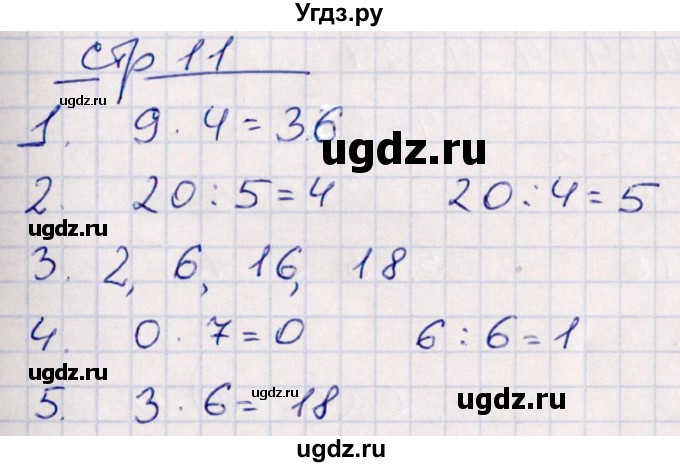 Угдз.ру
стр 11
ugdz.ru
1. 9 · 4 = 36
ugdz.ru
2. 20 : 5 = 4 20 : 4 = 5
ugdz.ru
3. 2, 6, 16, 18
4. 0 · 7 = 0 6 : 6 = 1
ugdz.ru
5. 3 · 6 = 18
ugdz.ru
ugdz.ru
ugdz.ru